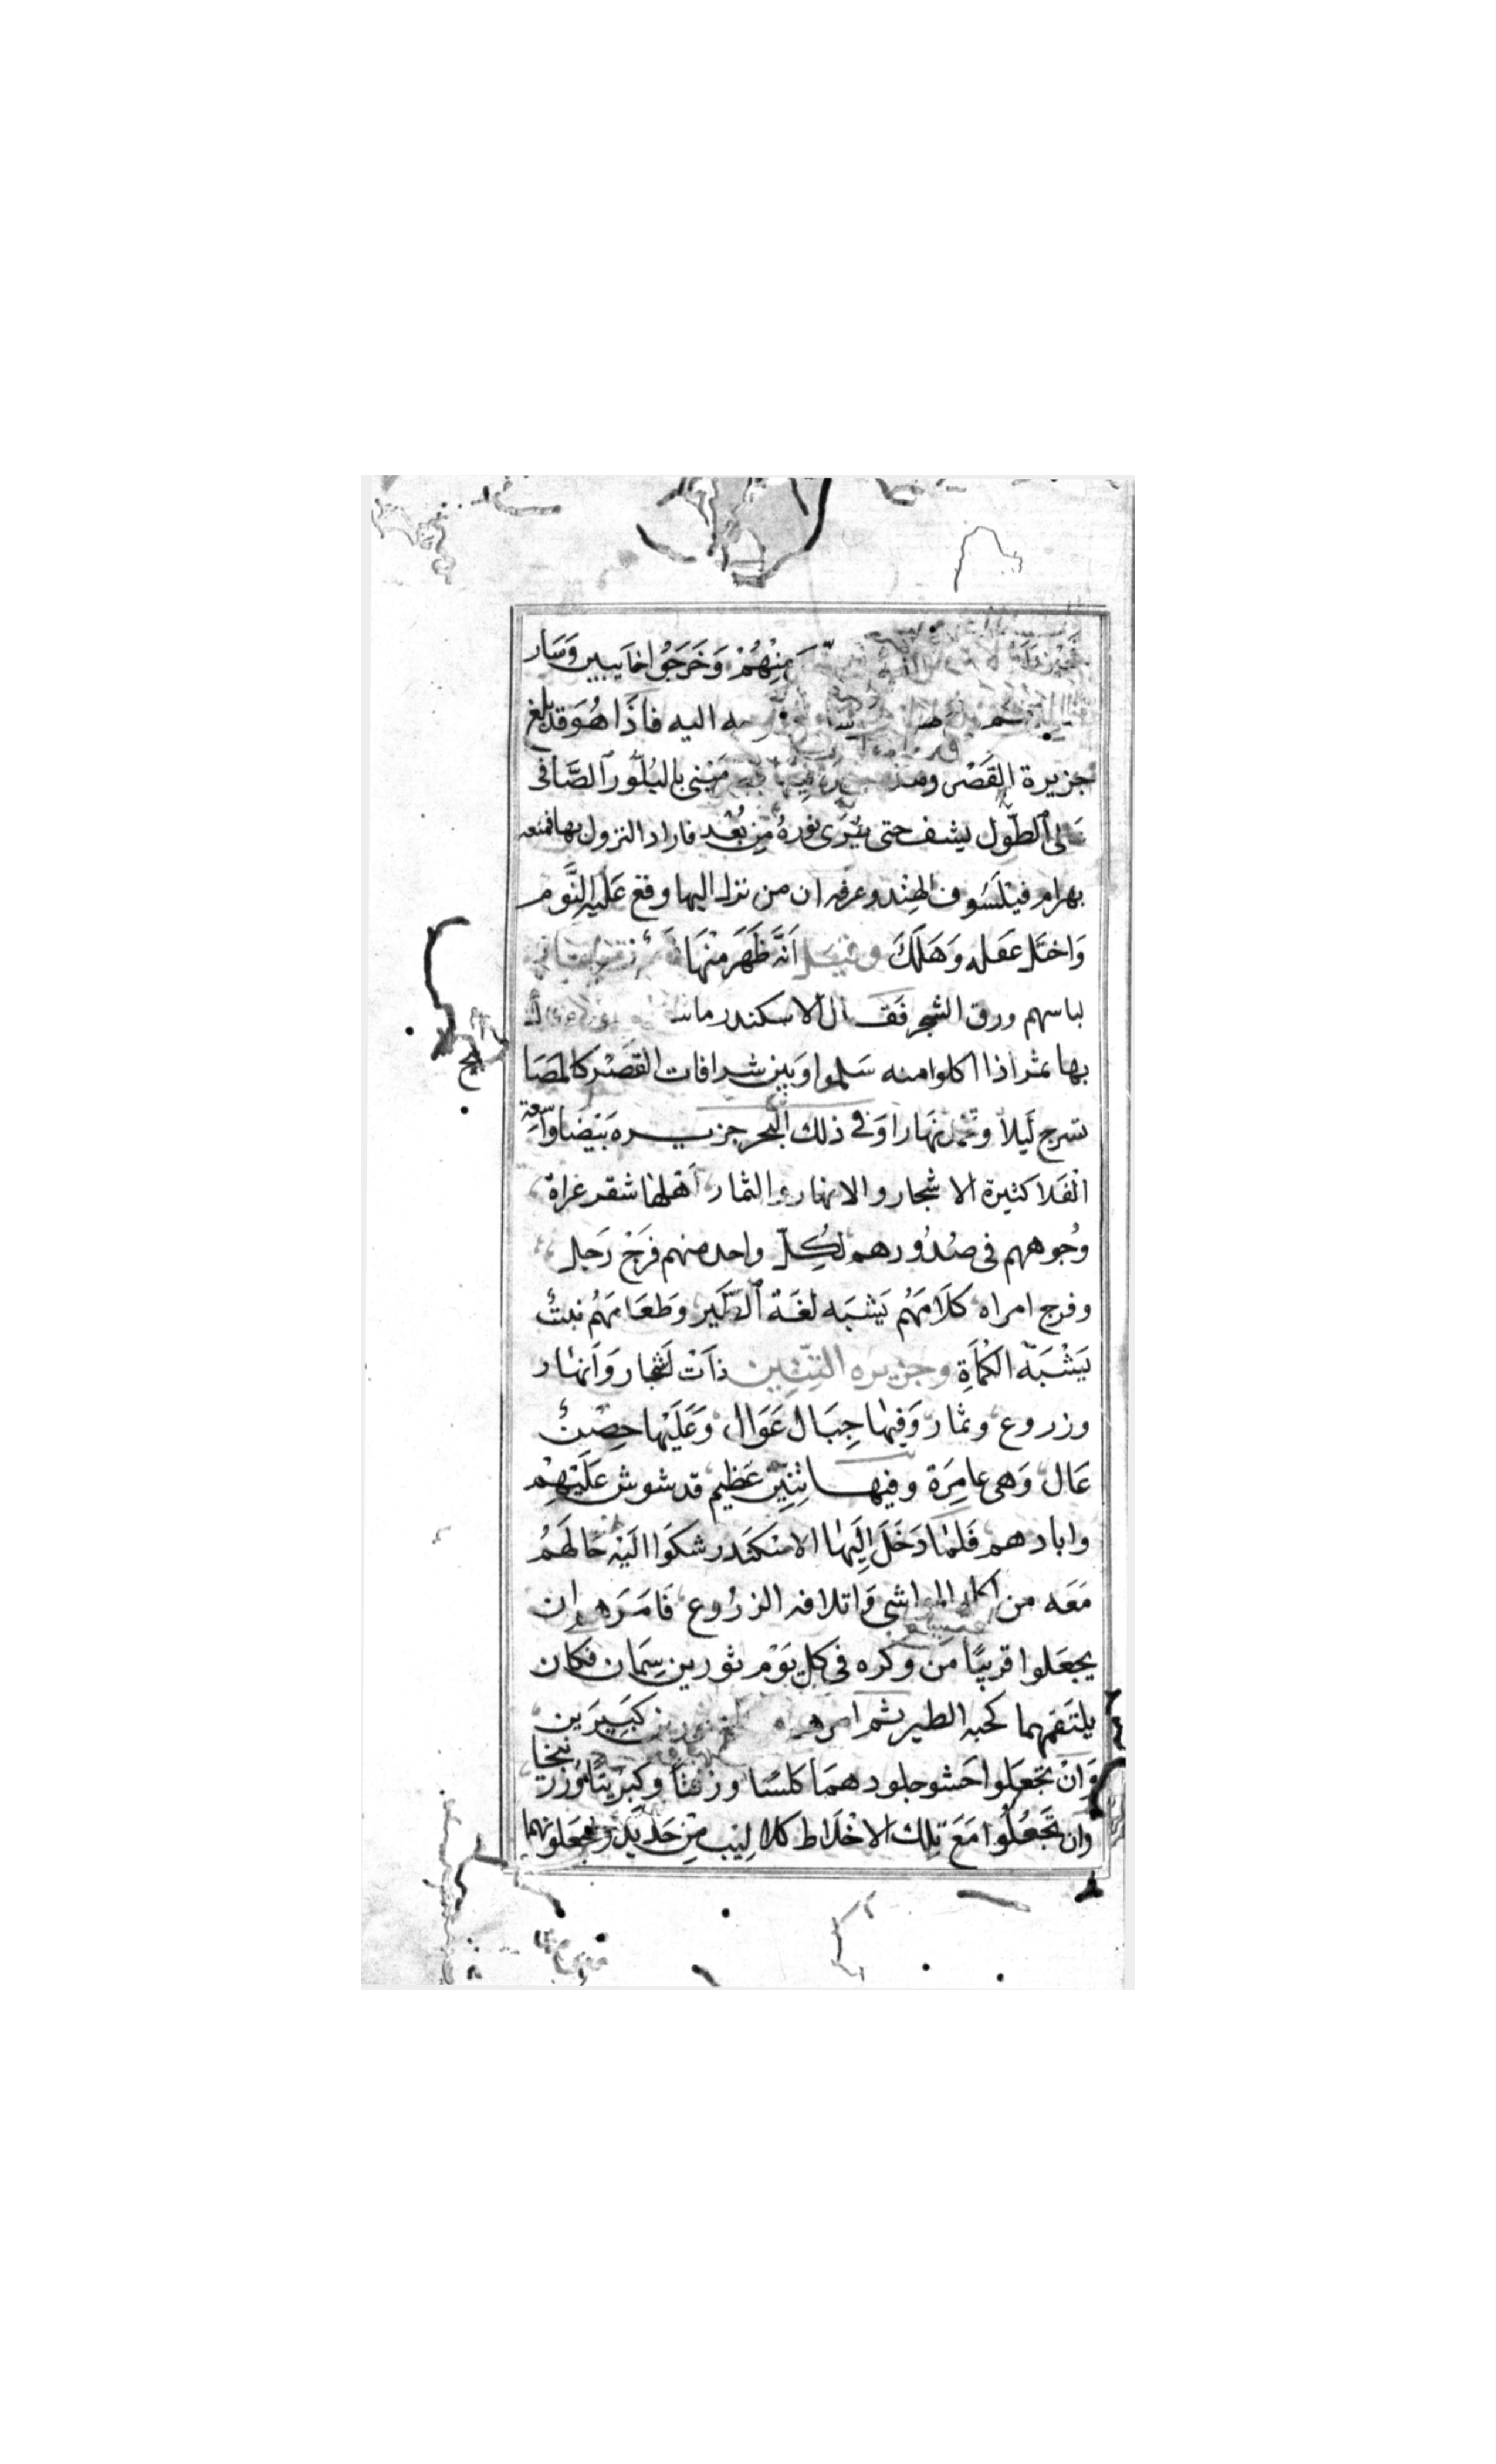 مِنْهُمْ وَخَرَجُوا خايبين وَسَار
اليه فاذَا هُوَ قد بلغ
جزيرة القَصْر مَبْنى بالبُلَّور الصَّافى
الطّول يشف حتى يُرَى نورهُ مِن بُعْد فاراد النزول بها فمنعه
بهرام فيْلَسُوف الهِنْد وعرفه ان من نزل اليها وقع عَليْه النَّوم
وَاختَل عَقله وَهَلَكَ وقيْل انَّه ظَهَر مِنْهَا
لباسهم ورق الشجر فَقال الاسكندر
بها ثمر اذا اكلوا منه سَلموا وَبين شرافات القَصْر كالمصَا
بيح
تسرج لَيلاً وتخمد نهَارا وَفى ذلك البحر جزيره بَيْضَا واسِعة
الفَلا كثيرة الاشجار والانهار والثمار اَهْلهَا شقر عراة
وُجوههم فى صُدُورهم لِكُلّ واحد منهم فَرَجْ رَجل
وفرج امراه كلاَمهُم يَشبَه لغَة الطَّير وَطعَامَهُم نبتٌ
يَشْبَه الكمْأَةِ وجزيره التِّنّين ذاَتْ اشجار وَاَنهار
وزروع وثمار وَفيهَا جِبَال عَوَال وَعَلَيْها حِصْنٌ
عَال وَهى عامِرَة وفيهَا تِنِّيْن عَظِيم قد شوش عَلَيْهِمْ
وابادهم فَلمَّا دَخَلَ اِلَيهَا الاسْكنَدر شكَوا اليْه حَالَهمُ
مَعَه من اكله المواشى وَاتلافه الزرُوع فَامَرَهم ان
يجعَلوا قريبًا من وَكره فى كل يَوْم ثورين سِمَان فكان
يلتَقمهما كحبه الطير ثم امرهم كَبِيرَين
وَانْ يجْعَلوا حَشو جلودهمَا كلسًا وزفتًا وكبْريْتًا وزر
نيخا
وان يَجْعَلُوا مَعَ تِلك الاخْلاط كلاليْب مِنْ حَدِيْد وَيجعَلونهما